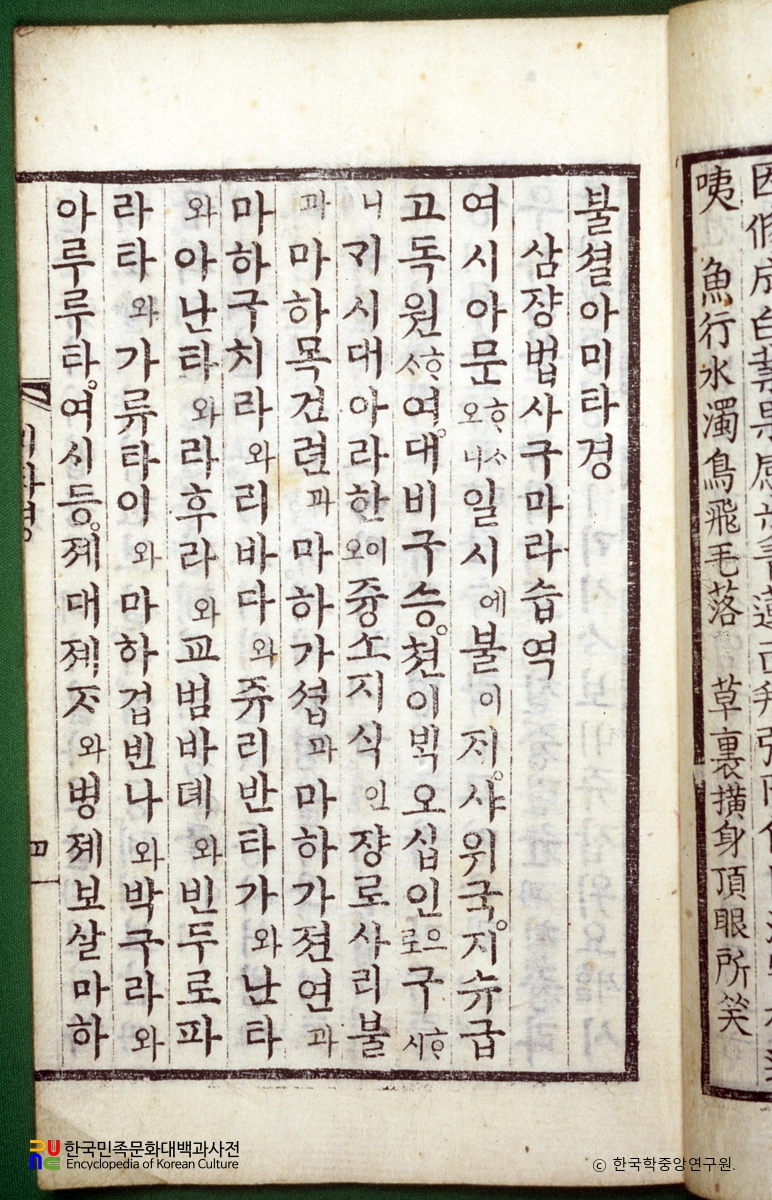 咦 魚行水濁鳥飛毛落 草裏撗身頂眼所笑
불셜아미타경
삼쟝법사구마라습역
여시아문ᄒᆞᄉᆞ오니일시에불이ᄌᆡ。샤위국。지슈급
고독원ᄒᆞᄉᆞ여。대비구승。쳔이ᄇᆡᆨ오십인으로구ᄒᆞ시
니ᄀᆡ시대아라한이오즁소지식인쟝로사리불
과마하목건련과마하가셥과마하가젼연과
마하구치라와리바다와쥬리반타가와난타
와아난타와라후라와교범바뎨와빈두로파
라타와가류타이와마하겁빈나와박구라와
아루루타。여시등。졔대졔ᄌᆞ와병졔보살마하
한국민족문화대백과사전
Encyclopedia of Korean Culture
ⓒ 한국학중앙연구원.